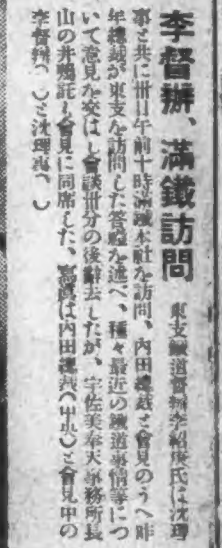 李督辦、滿鐵訪問
東支鐵道督辦李紹庚氏は沈理
事と共に卅日午前十時滿鐵本社を訪問、内田總裁と會見のうへ昨
年總裁が東支を訪問した答禮を述べ、種々最近の鐵道事情等につ
いて意見を交はし會談卅分の後辭去したが、宇佐美奉天事務所長
山の井囑託も會見に同席した、寫眞は内田總裁(中央)と會見中の
李督辦( )と沈理事( )